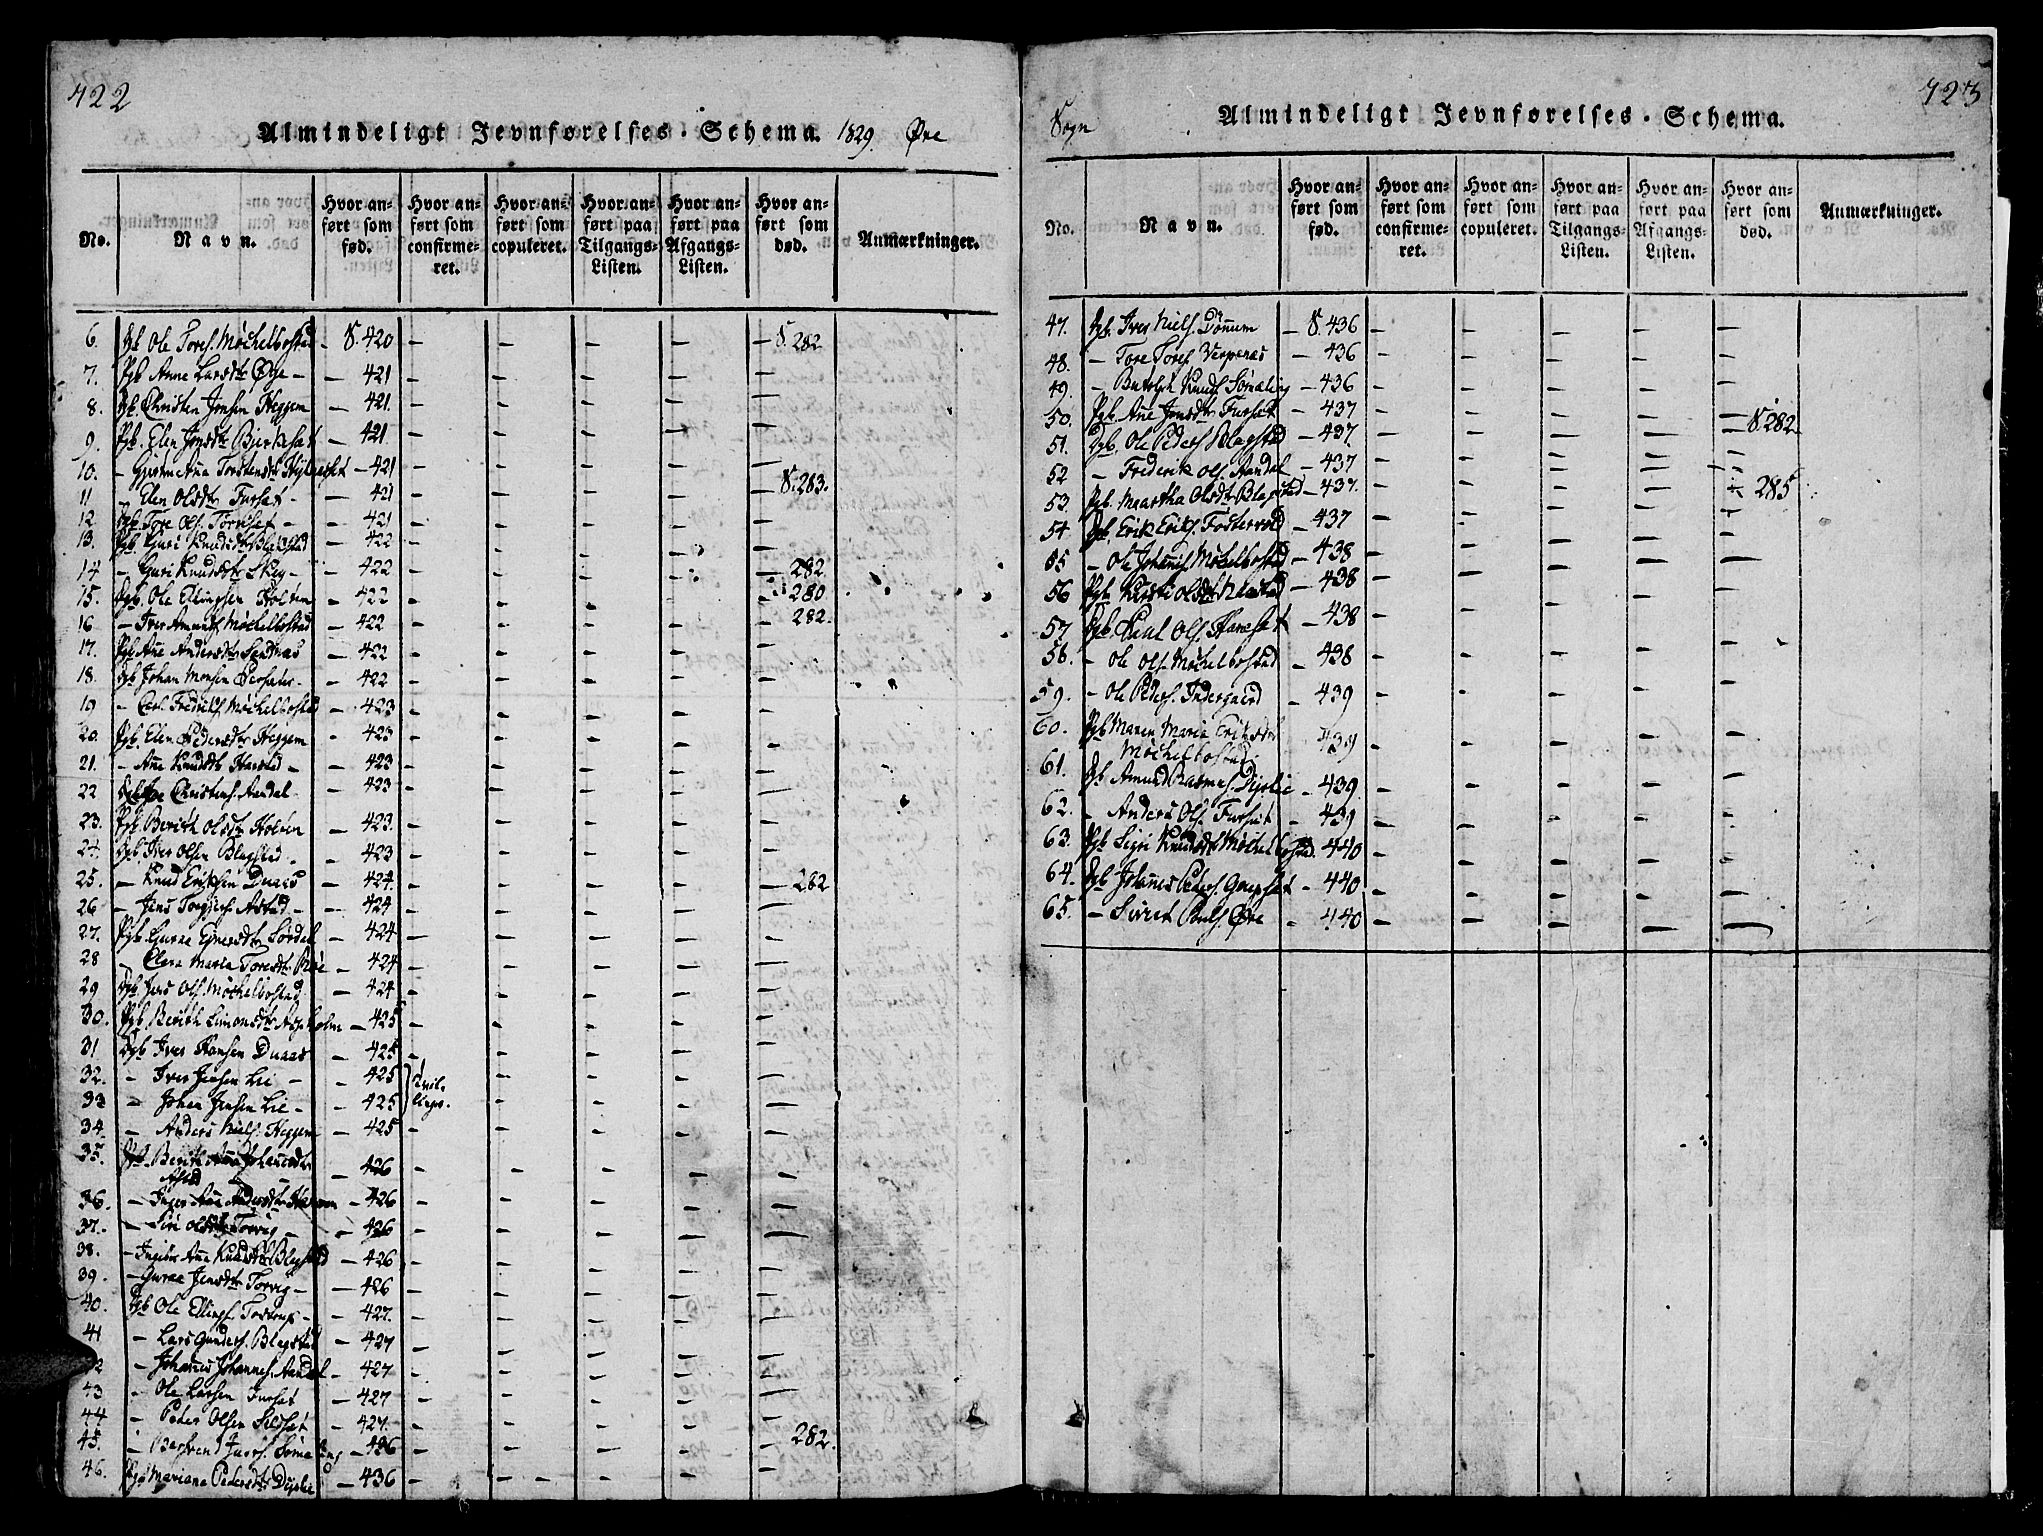 422
Almindeligt Jevnførelses-Schema. 1829. Øre
No. Navn. Hvor anført som fød. Hvor anført som confirmeret. Hvor anført som copuleret. Hvor anført paa Tilgangs-Listen. Hvor anført paa Afgangs-Listen. Hvor anført som død. Anmærkninger.
6. Ole Tores. Møchelbostad - S. 420 - - - - - S. 282
7. Pgb Anne Larsdtr Øye - - 421 - - - - -
8. Christen Jensen Heggem - 421. - - - - -
9. Pgb. Elen Jonsdtr Bjerkeset - 421 - - - - -
10. - Anne Torstensdtr - 421 - - - - -
11 - Elen Olsdtr Furset - - 421 - - - - - S. 283.
12. Tore Ols. Torvset - - 421 - - - - -
13. Pgb Guri Knudsdtr Blekstad - 422 - - - - -
14 - Guri Knudsdtr Skeg - - 422 - - - - - 282
15. Ole Ellingsen Holten - 422 - - - - - 280
16 - Iver Amunds. Møchelbostad - 422 - - - - - 282.
17. Pgb Ane Andersdtr - 422 - - - - -
18. Johan Monsen - 422 - - - - -
19 - Carl Fredriks. Møchelbostad - 423 - - - - -
20. Pgb. Elen Pedersdtr Heggem - 423 - - - - -
21. - Ane Knudsdtr Harstad - - 423 - - - - -
22 Christens. Aandal - 423 - - - - -
23. Pgb. Berith Olsdtr Holten - 423. - - - - -
24. Iver Olsen Blegstad - 423 - - - - -
25. - Knud Eriksen Duaas - 424. - - - - - 282
26 - Jens Astad - - 424 - - - - -
27. Pgb. Guroe Sørdal - 424 - - - - -
28 - Elena Maria Toresdtr Røe - 424 - - - - -
29 Jens Ols. Møchelbostad - 424 - - - - -
30. Pgb Berith Simonsdtr Aspholm - 425 - - - - -
31 Iver Hansen Duaas - 425 - - - - -
32. - Iver Jensen Lie - - 425 Tvil- - - - - -
33 - Johan Jensen Lie - - 425 linger. - - - - -
34. - Anders Niels. Heggem - 425 - - - - -
35. Berith Ane Johannesdtr
Astad - 426 - - - - -
36. - Inger Ane Andersdtr - 426 - - - - -
37. - Siri Olsdtr Torvig - - 426 - - - - -
38. - Ane Knudsdtr Blegstad - 426 - - - - -
39. - Guroe Jensdtr Torvig - - 426 - - - - -
40. Ole Ellings. - 427. - - - - -
41 - Lars Gunders. Blegstad - 427 - - - - -
42 - Johannes Johannes. Aandal - 427 - - - - -
43 - Ole Larsen Furset - 427 - - - - -
44 - Peder Olsen Sildset - 427. - - - - -
45. - - 436 - - - - - 282.
46. Pgb Mariane Pedersdtr - 436 - - - - -
423
Sogn
Almindeligt Jevnførelses-Schema.
No. Navn. Hvor anført som fød. Hvor anført som confirmeret. Hvor anført som copuleret. Hvor anført paa Tilgangs-Listen. Hvor anført paa Afgangs-Listen. Hvor anført som død. Anmærkninger.
47. Iver Niels. Dønnum - S. 436 - - - - -
48. - Tore Tores. - 436 - - - - -
49. - Knuds. - 436 - - - - -
50. Pgb. Ane Jonsdtr Furset - 437 - - - - - S. 282.
51. Ole Peders. Blegstad - 437. - - - - -
52 - Frederik Ols. Aandal - 437 - - - - -
53. Pgb. Maartha Olsdtr Blegstad - 437. - - - - - 285
54. Erik Eriks. Fostervold - 437 - - - - -
55 - Ole Johannes. Møchelbostad - 438 - - - - -
56 Pgb Kirsti Olsdtr - 438 - - - - -
57 Paul Ols. Harset - 438 - - - - -
58. - Ole Ols. Møchelbostad - 438 - - - - -
59. - Ole Peders. Indergaard - 439 - - - - -
60. Pgb Maren Maria Eriksdtr
Møchelbostad 439 - - - - -
61. Amund Rasmus. - 439. - - - - -
62. - Anders Ols. Furset - 439 - - - - -
63. Pgb Sigri Knudsdtr Møchelbostad. 440 - - - - -
64. Johannes Peders. - 440 - - - - -
65. - Sivert Pauls. Øre - 440 - - - - -